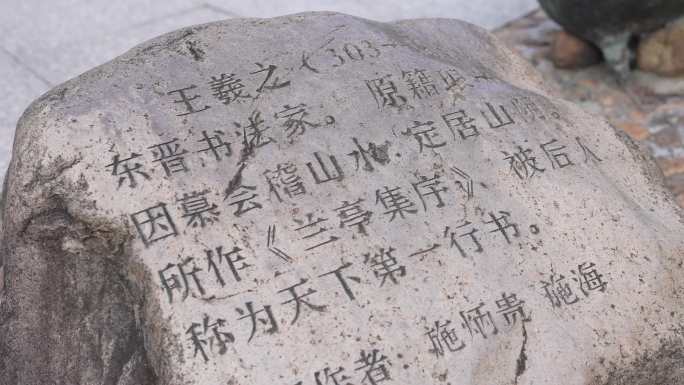 王羲之（303-
东晋书法家。原籍
因慕会稽山水，定居山阴。
所作《兰亭集序》，被后人
称为天下第一行书。
作者：施炳贵 施海